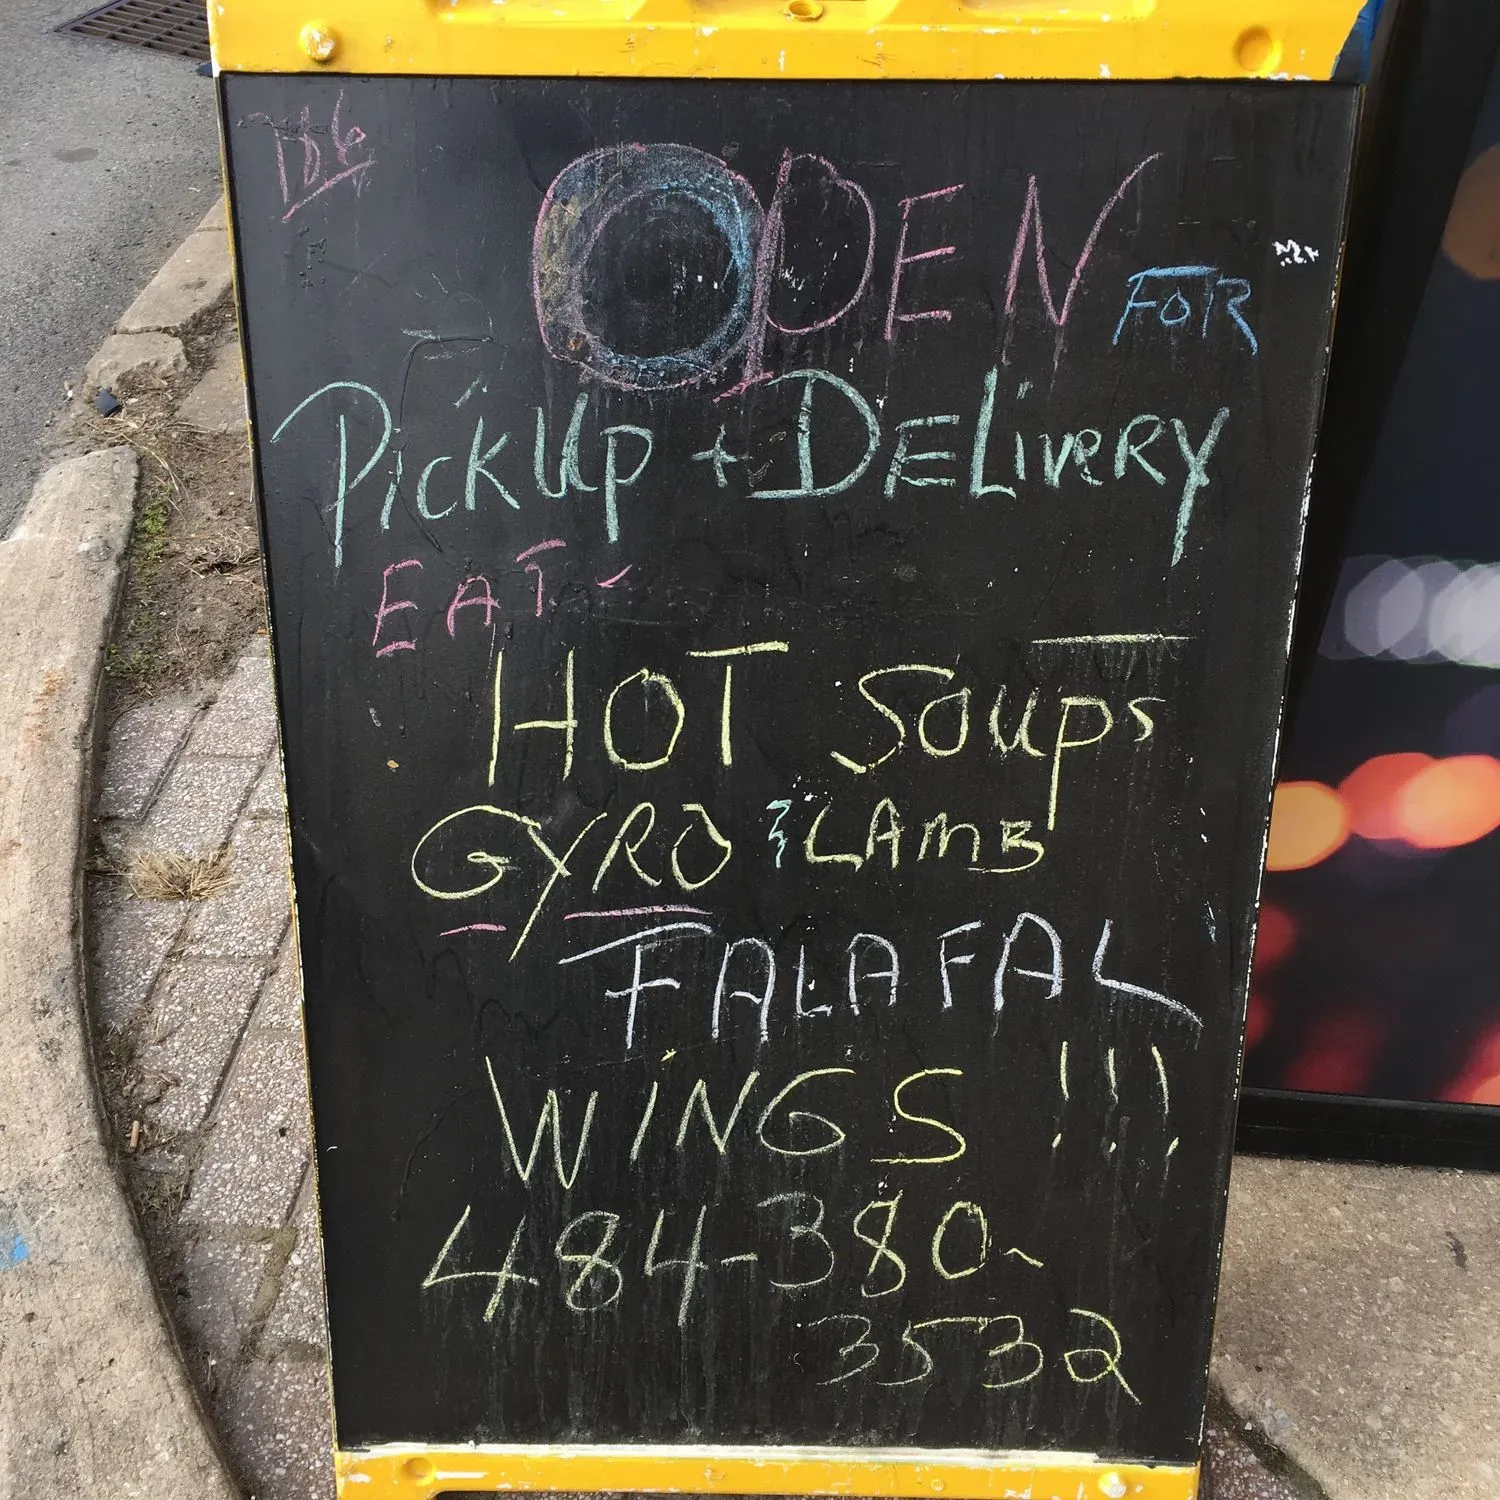 OPEN FOR
PickUp + DELivERY
EAT
HOT Soups
GYRO & LAMB
FALAFAL
WiNGS !!!
484-380-
3532